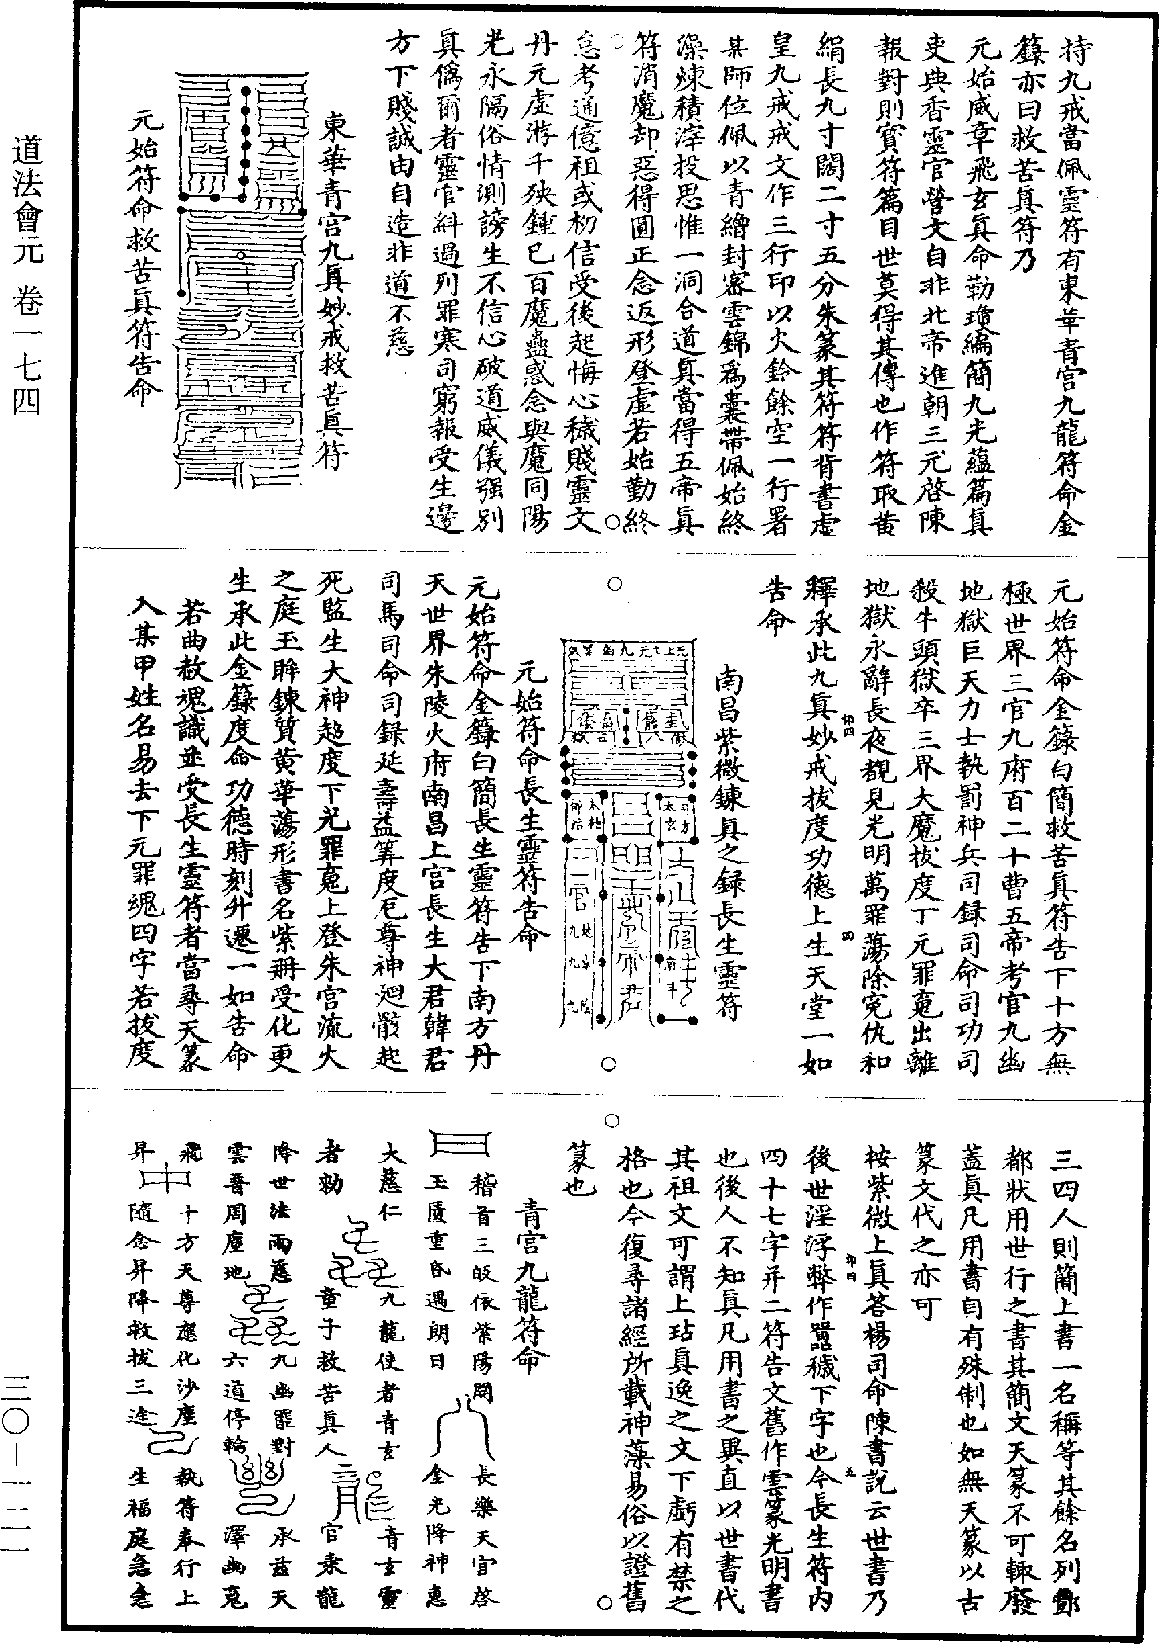 道法會元 卷一七四
持九戒當佩靈符有東華青宮九龍符命金
籙亦曰救苦真符乃
元始威章飛玄真命勒瓊編簡九光蘊篇真
吏典香靈官營文自非北帝進朝三元啓陳
報對則寶符篇目世莫得其傳也作符取黃
絹長九寸闊二寸五分朱篆其符符背書虛
皇九戒戒文作三行印以火鈴餘空一行署
某師位佩以青繒封密雲錦為囊帶佩始終
澡煉積滓投思惟一洞合道真當得五帝真
符消魔却惡得圓正念返形登虛若始勤終
怠考通億祖或初信受後起悔心穢賤靈文
丹元虛游千殃鍾己百魔蠱惑念與魔同陽
光永隔俗情測謗生不信心破道威儀强别
真僞爾者靈官糾過列罪寒司窮報受生邊
方下賤誠由自造非道不慈
東華青宮九真妙戒救苦真符
元始符命救苦真符告命
元始符命金籙白簡救苦真符告下十方無
極世界三官九府百二十曹五帝考官九幽
地獄巨天力士執罰神兵司録司命司功司
殺牛頭獄卒三界大魔拔度丁元罪䰟出離
地獄永辭長夜覩見光明萬罪蕩除冤仇和
釋承此九真妙戒拔度功德上生天堂一如
告命
南昌紫微鍊真之録長生靈符
元始符命長生靈符告命
元始符命金籙白簡長生靈符告下南方丹
天世界朱陵火府南昌上宮長生大君韓君
司馬司命司録延壽益筭度厄尊神迴骸起
死監生大神超度下元罪䰟上登朱宮流火
之庭玉眸鍊質黃華蕩形書名紫册受化更
生承此金籙度命功德時刻升遷一如告命
若曲赦魂識並受長生靈符者當尋天篆
入某甲姓名易去下元罪魂四字若拔度
三四人則簡上書一名稱等其餘名列鄷
都狀用世行之書其簡文天篆不可輒廢
蓋真凡用書自有殊制也如無天篆以古
篆文代之亦可
按紫微上真答楊司命陳書說云世書乃
後世淫浮弊作囂穢下字也今長生符内
四十七字并二符告文舊作雲篆光明書
也後人不知真凡用書之異直以世書代
其祖文可謂上玷真逸之文下虧有禁之
格也今復尋諸經所載神藻易俗以證舊
篆也
青宮九龍符命
稽首三皈依紫陽闕 長樂天宮啓
玉匱重昏遇朗日 金光降神惠
大慈仁 九龍使者青玄 青玄靈
者勑 童子救苦真人 官乘龍
降世法雨慈 九幽罪對 承兹天
雲普周塵地 六道停輪 澤幽䰟
飛 十方天尊應化沙塵 執符奉行上
昇 隨念昇降救拔三途 生福庭急急
三〇—一二一